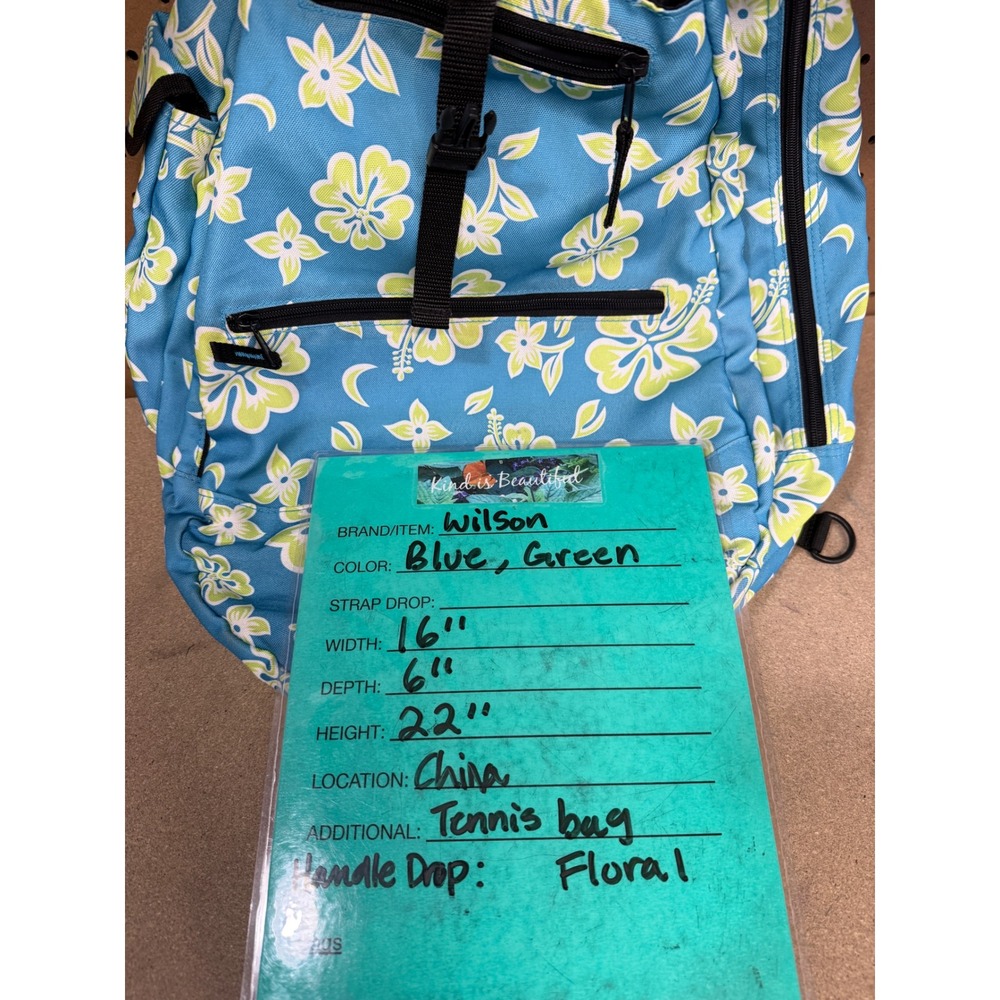 Kind is Beautiful
BRAND/ITEM: Wilson
COLOR: Blue, Green
STRAP DROP:
WIDTH: 16"
DEPTH: 6"
HEIGHT: 22"
LOCATION: China
ADDITIONAL: Tennis bag
Handle Drop: Floral